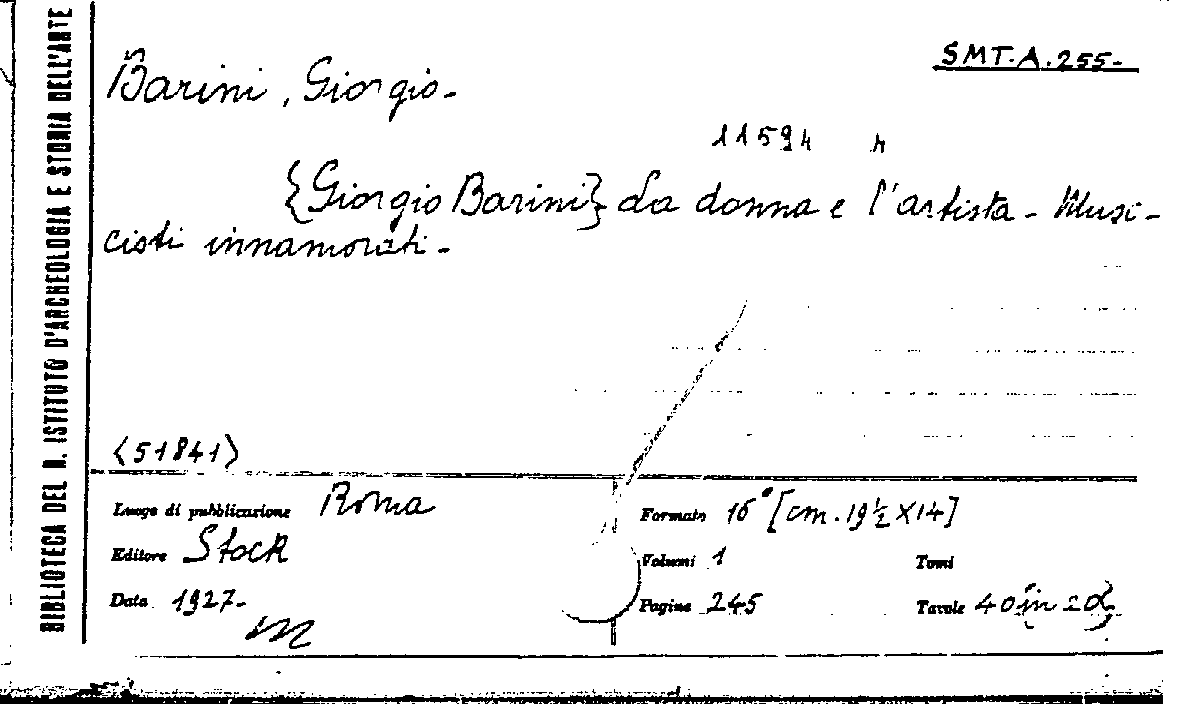 BIBLIOTECA DEL R. ISTITUTO D'ARCHEOLOGIA E STORIA DELL'ARTE
SMT-A.255-
Barini, Giorgio-
11594
{Giorgio Barini} La donna e l'artista - Musi-
cisti innamorati.-
<51841>
Luogo di pubblicazione Roma
Editore Stock
Data 1927-
Formato 16° [cm. 19½ X 14]
Volumi 1 Tomi
Pagine 245 Tavole 40 in